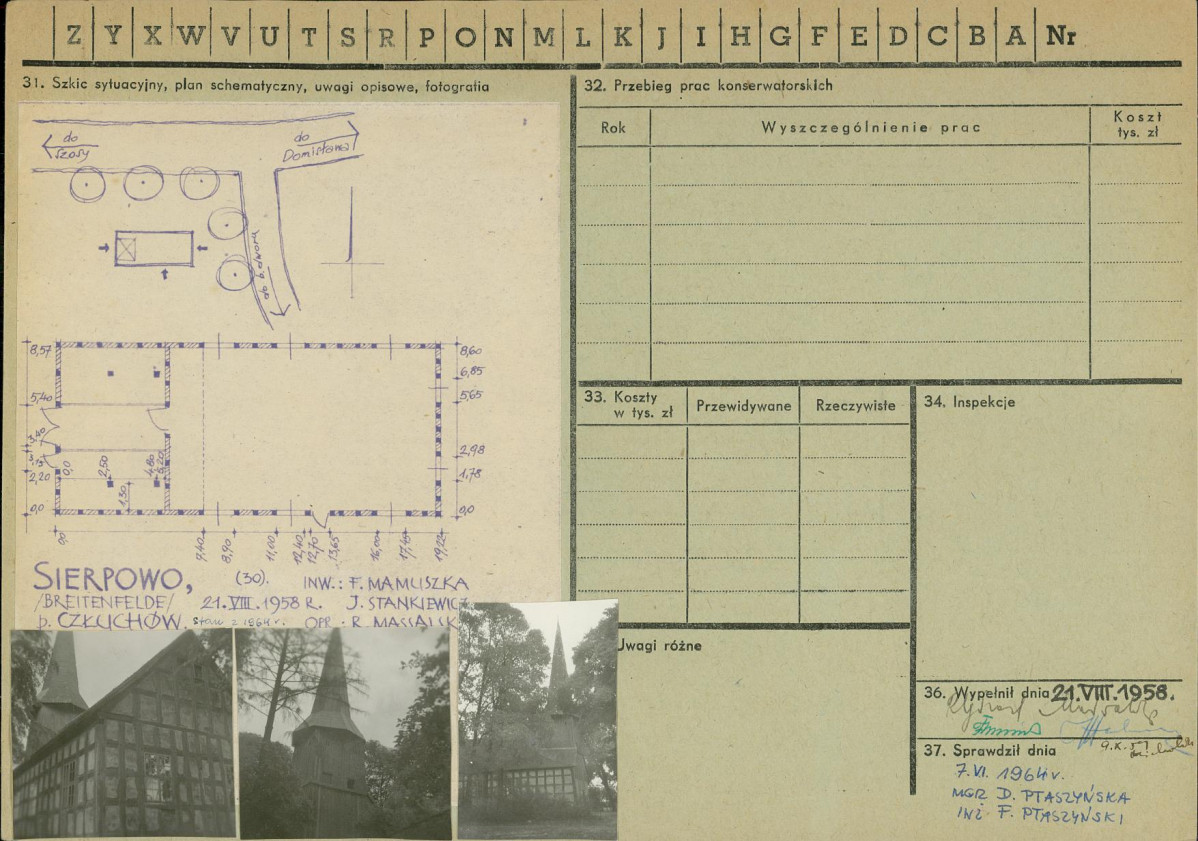 Z Y X W V U T S R P O N M L K J I H G F E D C B A Nr
31. Szkic sytuacyjny, plan schematyczny, uwagi opisowe, fotografia
do
szosy
do
Domisława
do b. dworu
8,57
5,40
2,20
0,0
0,0
2,50
4,80
5,20
1,30
8,60
6,85
5,65
2,98
1,78
0,0
0,0
7,40
8,90
11,00
12,40
12,70
13,65
16,00
17,40
19,22
SIERPOWO, (30). INW.: F. MAMUSZKA
/BREITENFELDE/ 21.VIII.1958 R. J. STANKIEWICZ
p. CZŁUCHÓW. Stan z 1964 r. OPR.: R. MASSALSK
32. Przebieg prac konserwatorskich
Rok
Wyszczególnienie prac
Koszt
tys. zł
33. Koszty
w tys. zł
Przewidywane
Rzeczywiste
34. Inspekcje
Uwagi różne
36. Wypełnił dnia 21.VIII.1958.
37. Sprawdził dnia
7.VI. 1964 r.
MGR D. PTASZYŃSKA
INŻ. F. PTASZYŃSKI